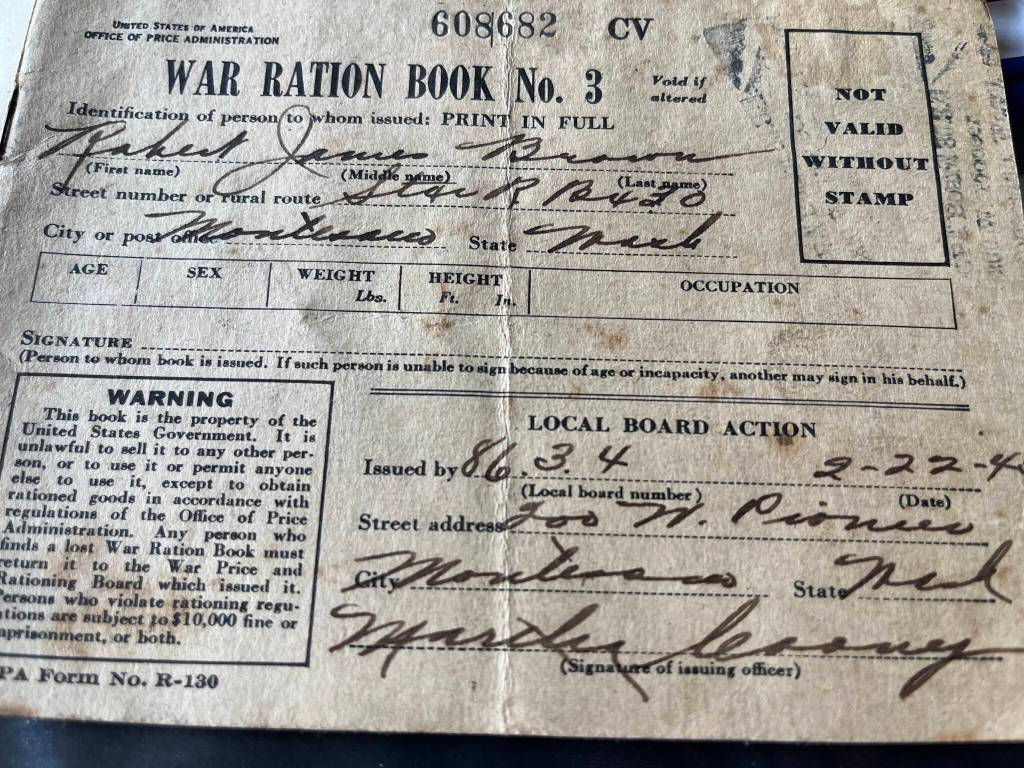 UNITED STATES OF AMERICA
OFFICE OF PRICE ADMINISTRATION
608682 CV
WAR RATION BOOK No. 3
Void if
altered
NOT
VALID
WITHOUT
STAMP
Identification of person to whom issued: PRINT IN FULL
Robert James Brown
(First name) (Middle name) (Last name)
Street number or rural route Star R B420
City or post office Montesano State Wash
AGE SEX WEIGHT Lbs. HEIGHT Ft. In. OCCUPATION
SIGNATURE
(Person to whom book is issued. If such person is unable to sign because of age or incapacity, another may sign in his behalf.)
WARNING
This book is the property of the
United States Government. It is
unlawful to sell it to any other per-
son, or to use it or permit anyone
else to use it, except to obtain
rationed goods in accordance with
regulations of the Office of Price
Administration. Any person who
finds a lost War Ration Book must
return it to the War Price and
Rationing Board which issued it.
Persons who violate rationing regu-
ations are subject to $10,000 fine or
mprisonment, or both.
LOCAL BOARD ACTION
Issued by 86.3.4 2-22-4
(Local board number) (Date)
Street address 200 W. Pioneer
City Montesano State Wash
Martha Cooney
(Signature of issuing officer)
PA Form No. R-130